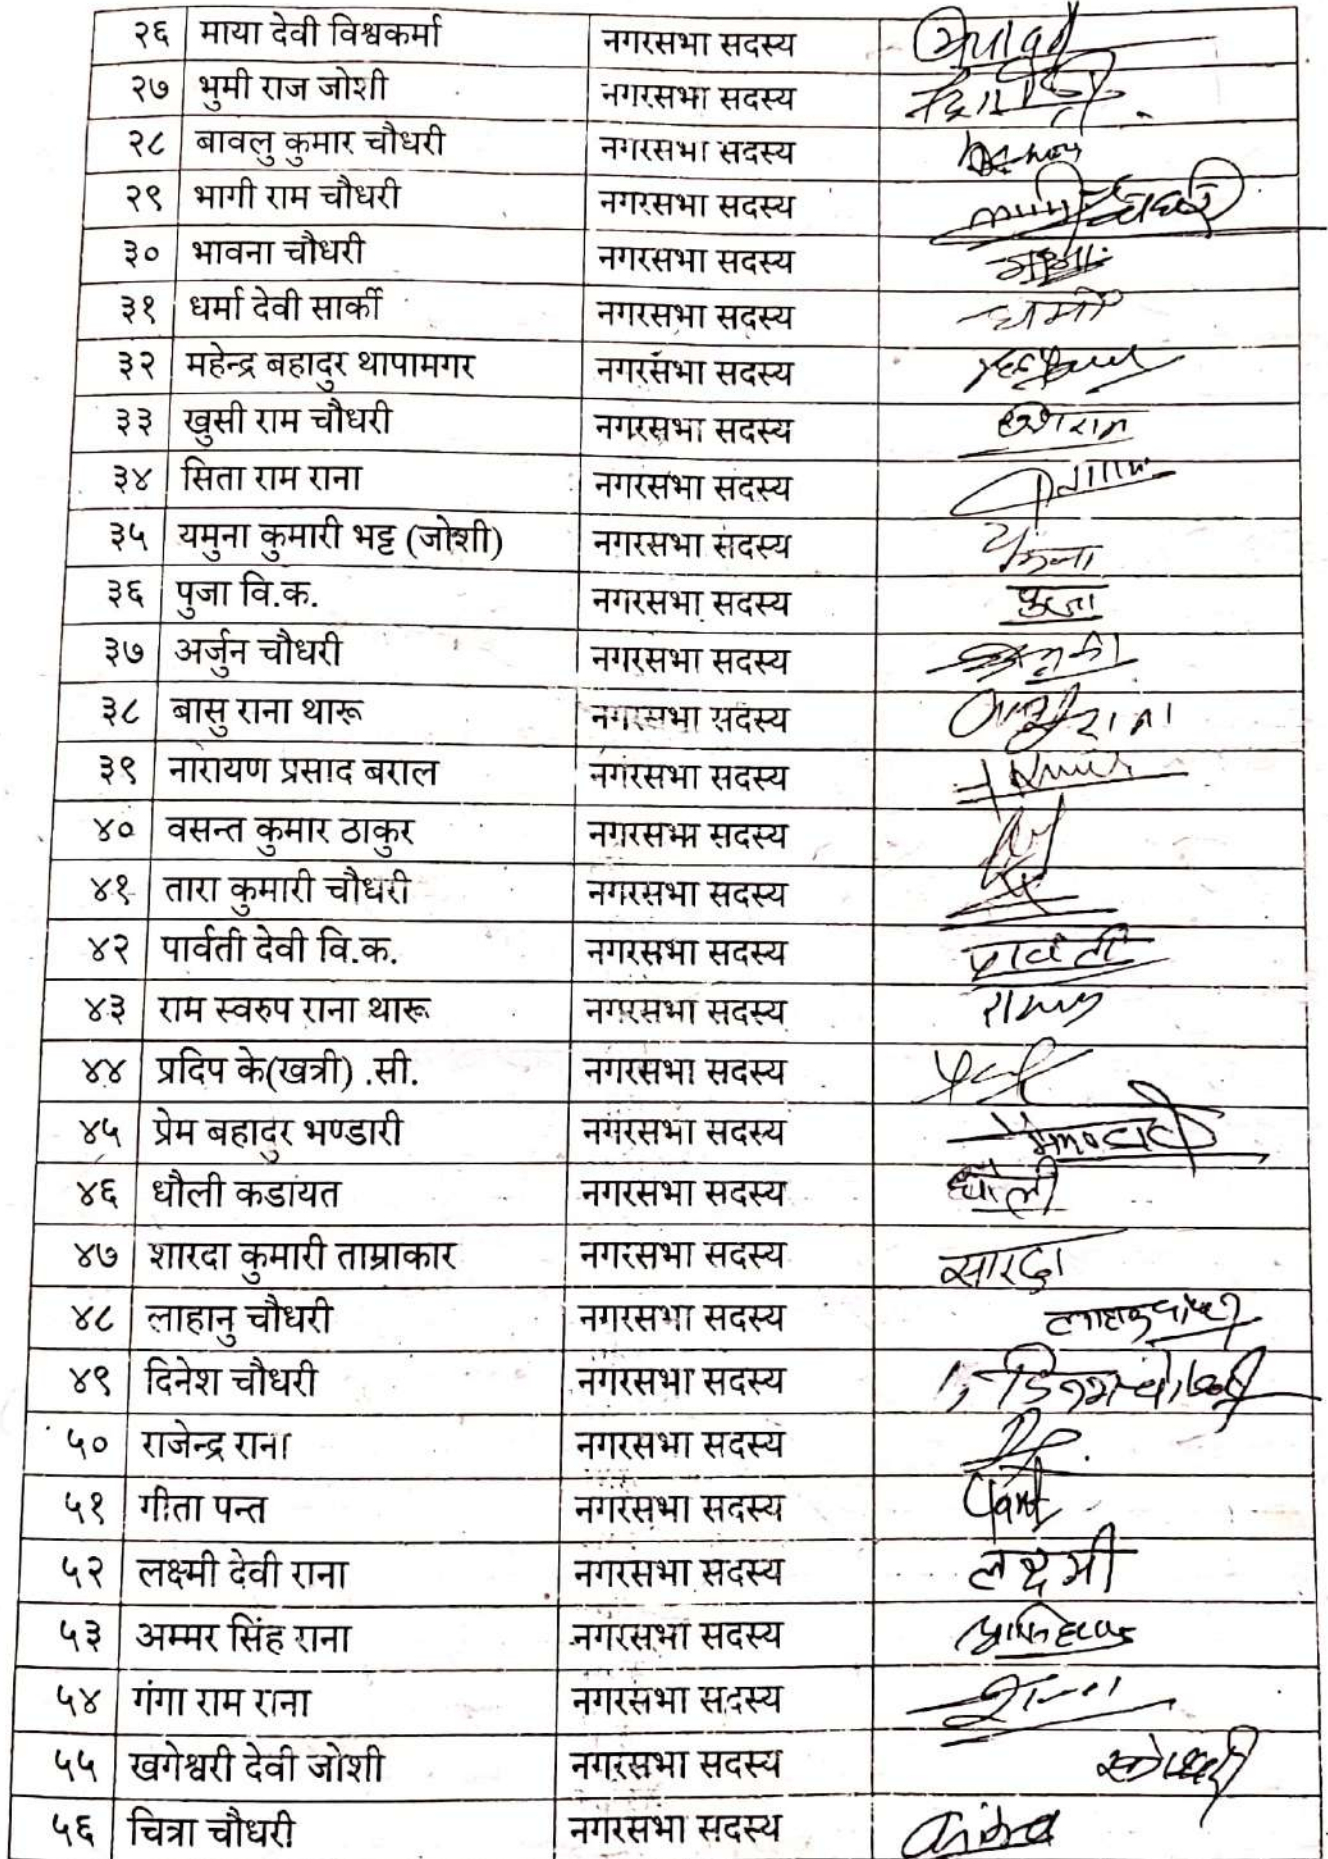 २६ माया देवी विश्वकर्मा नगरसभा सदस्य
२७ भुमी राज जोशी नगरसभा सदस्य
२८ बावलु कुमार चौधरी नगरसभा सदस्य
२९ भागी राम चौधरी नगरसभा सदस्य
३० भावना चौधरी नगरसभा सदस्य
३१ धर्मा देवी सार्की नगरसभा सदस्य
३२ महेन्द्र बहादुर थापामगर नगरसभा सदस्य
३३ खुसी राम चौधरी नगरसभा सदस्य
३४ सिता राम राना नगरसभा सदस्य
३५ यमुना कुमारी भट्ट (जोशी) नगरसभा सदस्य
३६ पुजा वि.क. नगरसभा सदस्य पुजा
३७ अर्जुन चौधरी नगरसभा सदस्य
३८ बासु राना थारू नगरसभा सदस्य
३९ नारायण प्रसाद बराल नगरसभा सदस्य
४० वसन्त कुमार ठाकुर नगरसभा सदस्य
४१ तारा कुमारी चौधरी नगरसभा सदस्य
४२ पार्वती देवी वि.क. नगरसभा सदस्य
४३ राम स्वरुप राना थारू नगरसभा सदस्य
४४ प्रदिप के(खत्री) .सी. नगरसभा सदस्य
४५ प्रेम बहादुर भण्डारी नगरसभा सदस्य
४६ धौली कडायत नगरसभा सदस्य धौली
४७ शारदा कुमारी ताम्राकार नगरसभा सदस्य सारदा
४८ लाहानु चौधरी नगरसभा सदस्य
४९ दिनेश चौधरी नगरसभा सदस्य
५० राजेन्द्र राना नगरसभा सदस्य
५१ गीता पन्त नगरसभा सदस्य Pant
५२ लक्ष्मी देवी राना नगरसभा सदस्य लक्ष्मी
५३ अम्मर सिंह राना नगरसभा सदस्य
५४ गंगा राम राना नगरसभा सदस्य
५५ खगेश्वरी देवी जोशी नगरसभा सदस्य
५६ चित्रा चौधरी नगरसभा सदस्य